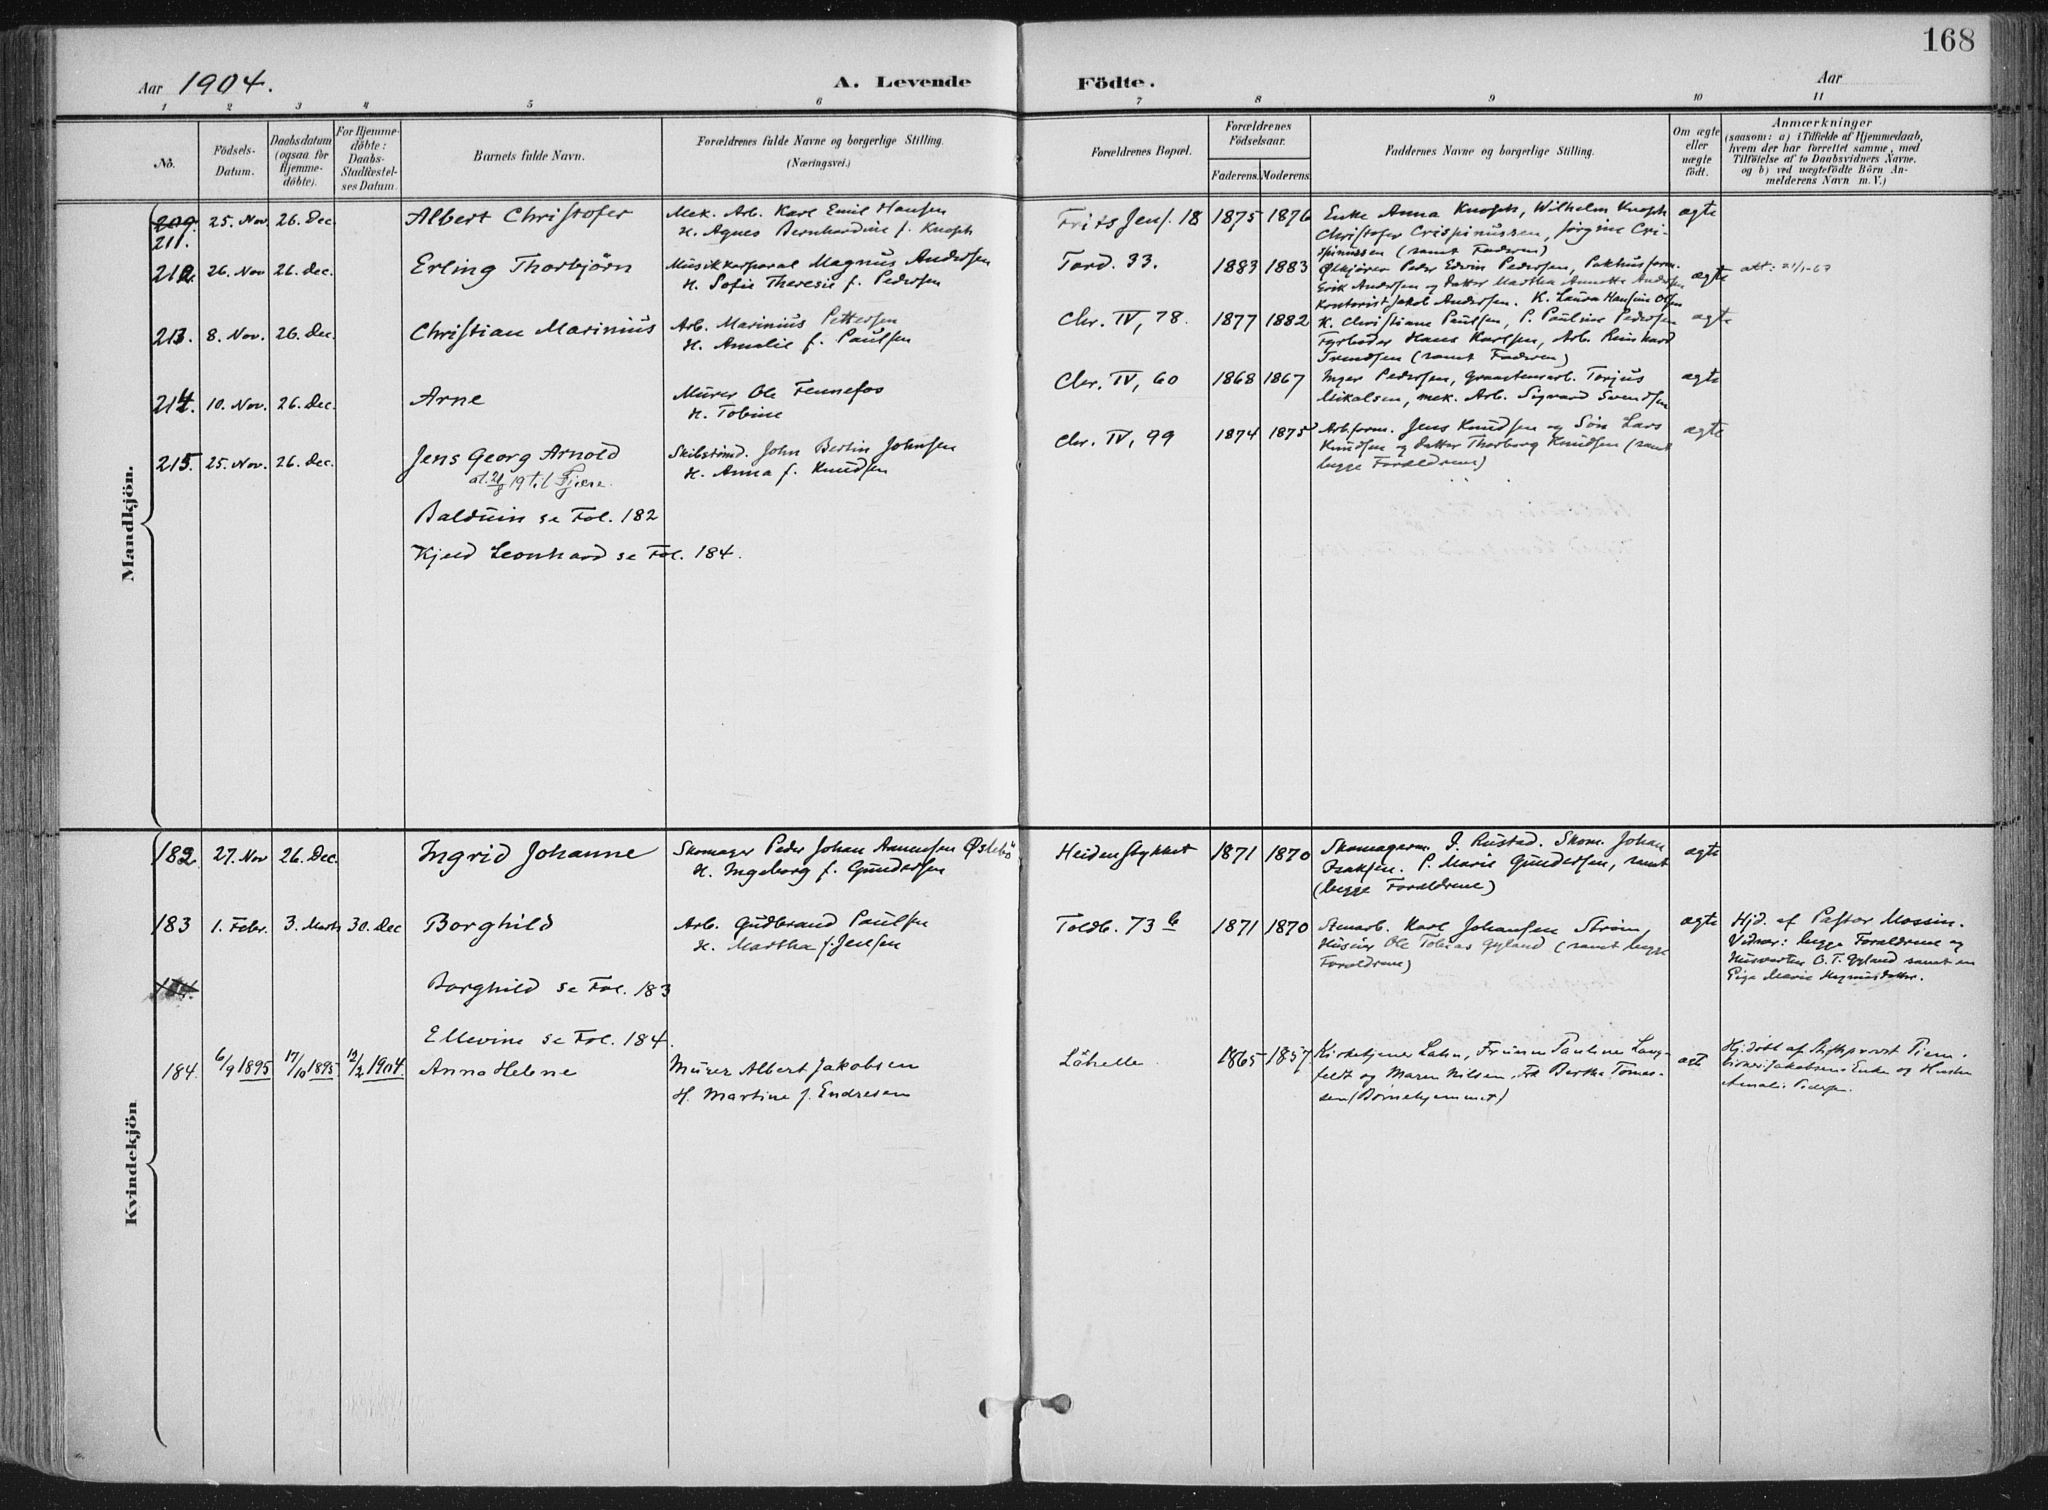 168
Aar 1904.
A. Levende Födte.
Aar
1 2 3 4 5 6 7 8 9 10 11
No.
Födsels-Datum.
Daabsdatum (ogsaa for Hjemme-döbte).
For Hjemme-döbte: Daabs-Stadfæstel-ses Datum.
Barnets fulde Navn.
Forældrenes fulde Navne og borgerlige Stilling. (Næringsvei.)
Forældrenes Bopæl.
Forældrenes Födselsaar.
Faderens. Moderens.
Faddernes Navne og borgerlige Stilling.
Om ægte eller uægte födt.
Anmærkninger
(saasom: a) i Tilfælde af Hjemmedaab,
hvem der har forrettet samme, med
Tilföielse af to Daabsvidners Navne.
og b) ved uægtefödte Börn An-
melderens Navn m. V.)
Mandkjön.
209 211. 25. Nov. 26. Dec. Albert Christofer
Mek. Arb. Karl Emil Hansen
H. Agnes Bernhardine f. Knoph
Frits Jens. 18 1875 1876
Enke Anna Knoph, Wilhelm Knoph
Christofer Crispinussen, Jørgine Cri-
spinussen (samt Faderen)
ægte
212. 26. Nov 26. Dec. Erling Thorbjörn
Musikkorporal Magnus Andersen
H. Sofie Theresie f. Pedersen
Tord. 33. 1883 1883
Ølkjører Peder Edvin Pedersen, Pakhusform.
Erik Andersen og Datter Martha Annette Andersen
Kontorist Jakob Andersen. K. Laura Hansine Olsen
ægte
att: 21/1-67
213. 8. Nov. 26. Dec. Christian Marinius
Arb. Marinius Pettersen
H. Amalie f. Paulsen
Chr. IV, 78. 1877 1882
K. Christiane Paulsen, P. Pauline Pedersen
Fyrbøder Hans Karlsen, Arb. Reinhard
Svendsen (samt Faderen)
ægte
214. 10. Nov. 26. Dec. Arne
Murer Ole Fennefos
H. Tobine
Chr. IV, 60 1868 1867
Inger Pedersen, Graastensarb. Torjus
Mikalsen, mek. Arb. Sigvard Svendsen
ægte
215. 25. Nov. 26. Dec. Jens Georg Arnold
Skibstømd. John Bertin Johnsen
H. Anna f. Knudsen
Chr. IV, 99 1874 1875
Arb.form. Jens Knudsen og Søn Lars
Knudsen og Datter Thorborg Knudsen (samt
begge Forældrene)
ægte
19 til Fjære.
Balduin se Fol. 182
Kjeld Leonhard se Fol. 184.
Kvindekjön
182 27. Nov 26. Dec. Ingrid Johanne
Skomager Peder Johan Annensen Øslebö
H. Ingeborg f. Gundersen
Heidenstykket 1871 1870
Skomagerm. J. Rustad. Skom. Johan
Isaksen. P. Marie Gundersen, samt
(begge Forældrene)
ægte
183 1. Febr. 3. Marts 30. Dec Borghild
Arb. Gudbrand Paulsen
H. Martha f. Jensen
Toldb. 73 b 1871 1870
Stenarb. Karl Johansen Strøm,
Huseier Ole Tobias Gyland (samt begge
Forældrene)
ægte
Hjd. af Pastor Mossin.
Vidner: begge Forældrene og
Husverten O. T. Gyland samt en
Pige Marie
184. Borghild se Fol. 183
Ellevine se Fol. 184.
184. 6/9 1895 17/10 1895 12/2 1904. Anna Helene
Murer Albert Jakobsen
H. Martine f. Endresen
Låhelle 1865 1857
Kirketjener Lahn, Fruerne Pauline Lang-
feldt og Maren Nilsen. Frk Bertha Tønnes-
sen (Børnehjemmet)
Hjdøbt af Stiftsprovst Tiem.
Vidner: Jakobsens Enke og
Amalie Pedersen.